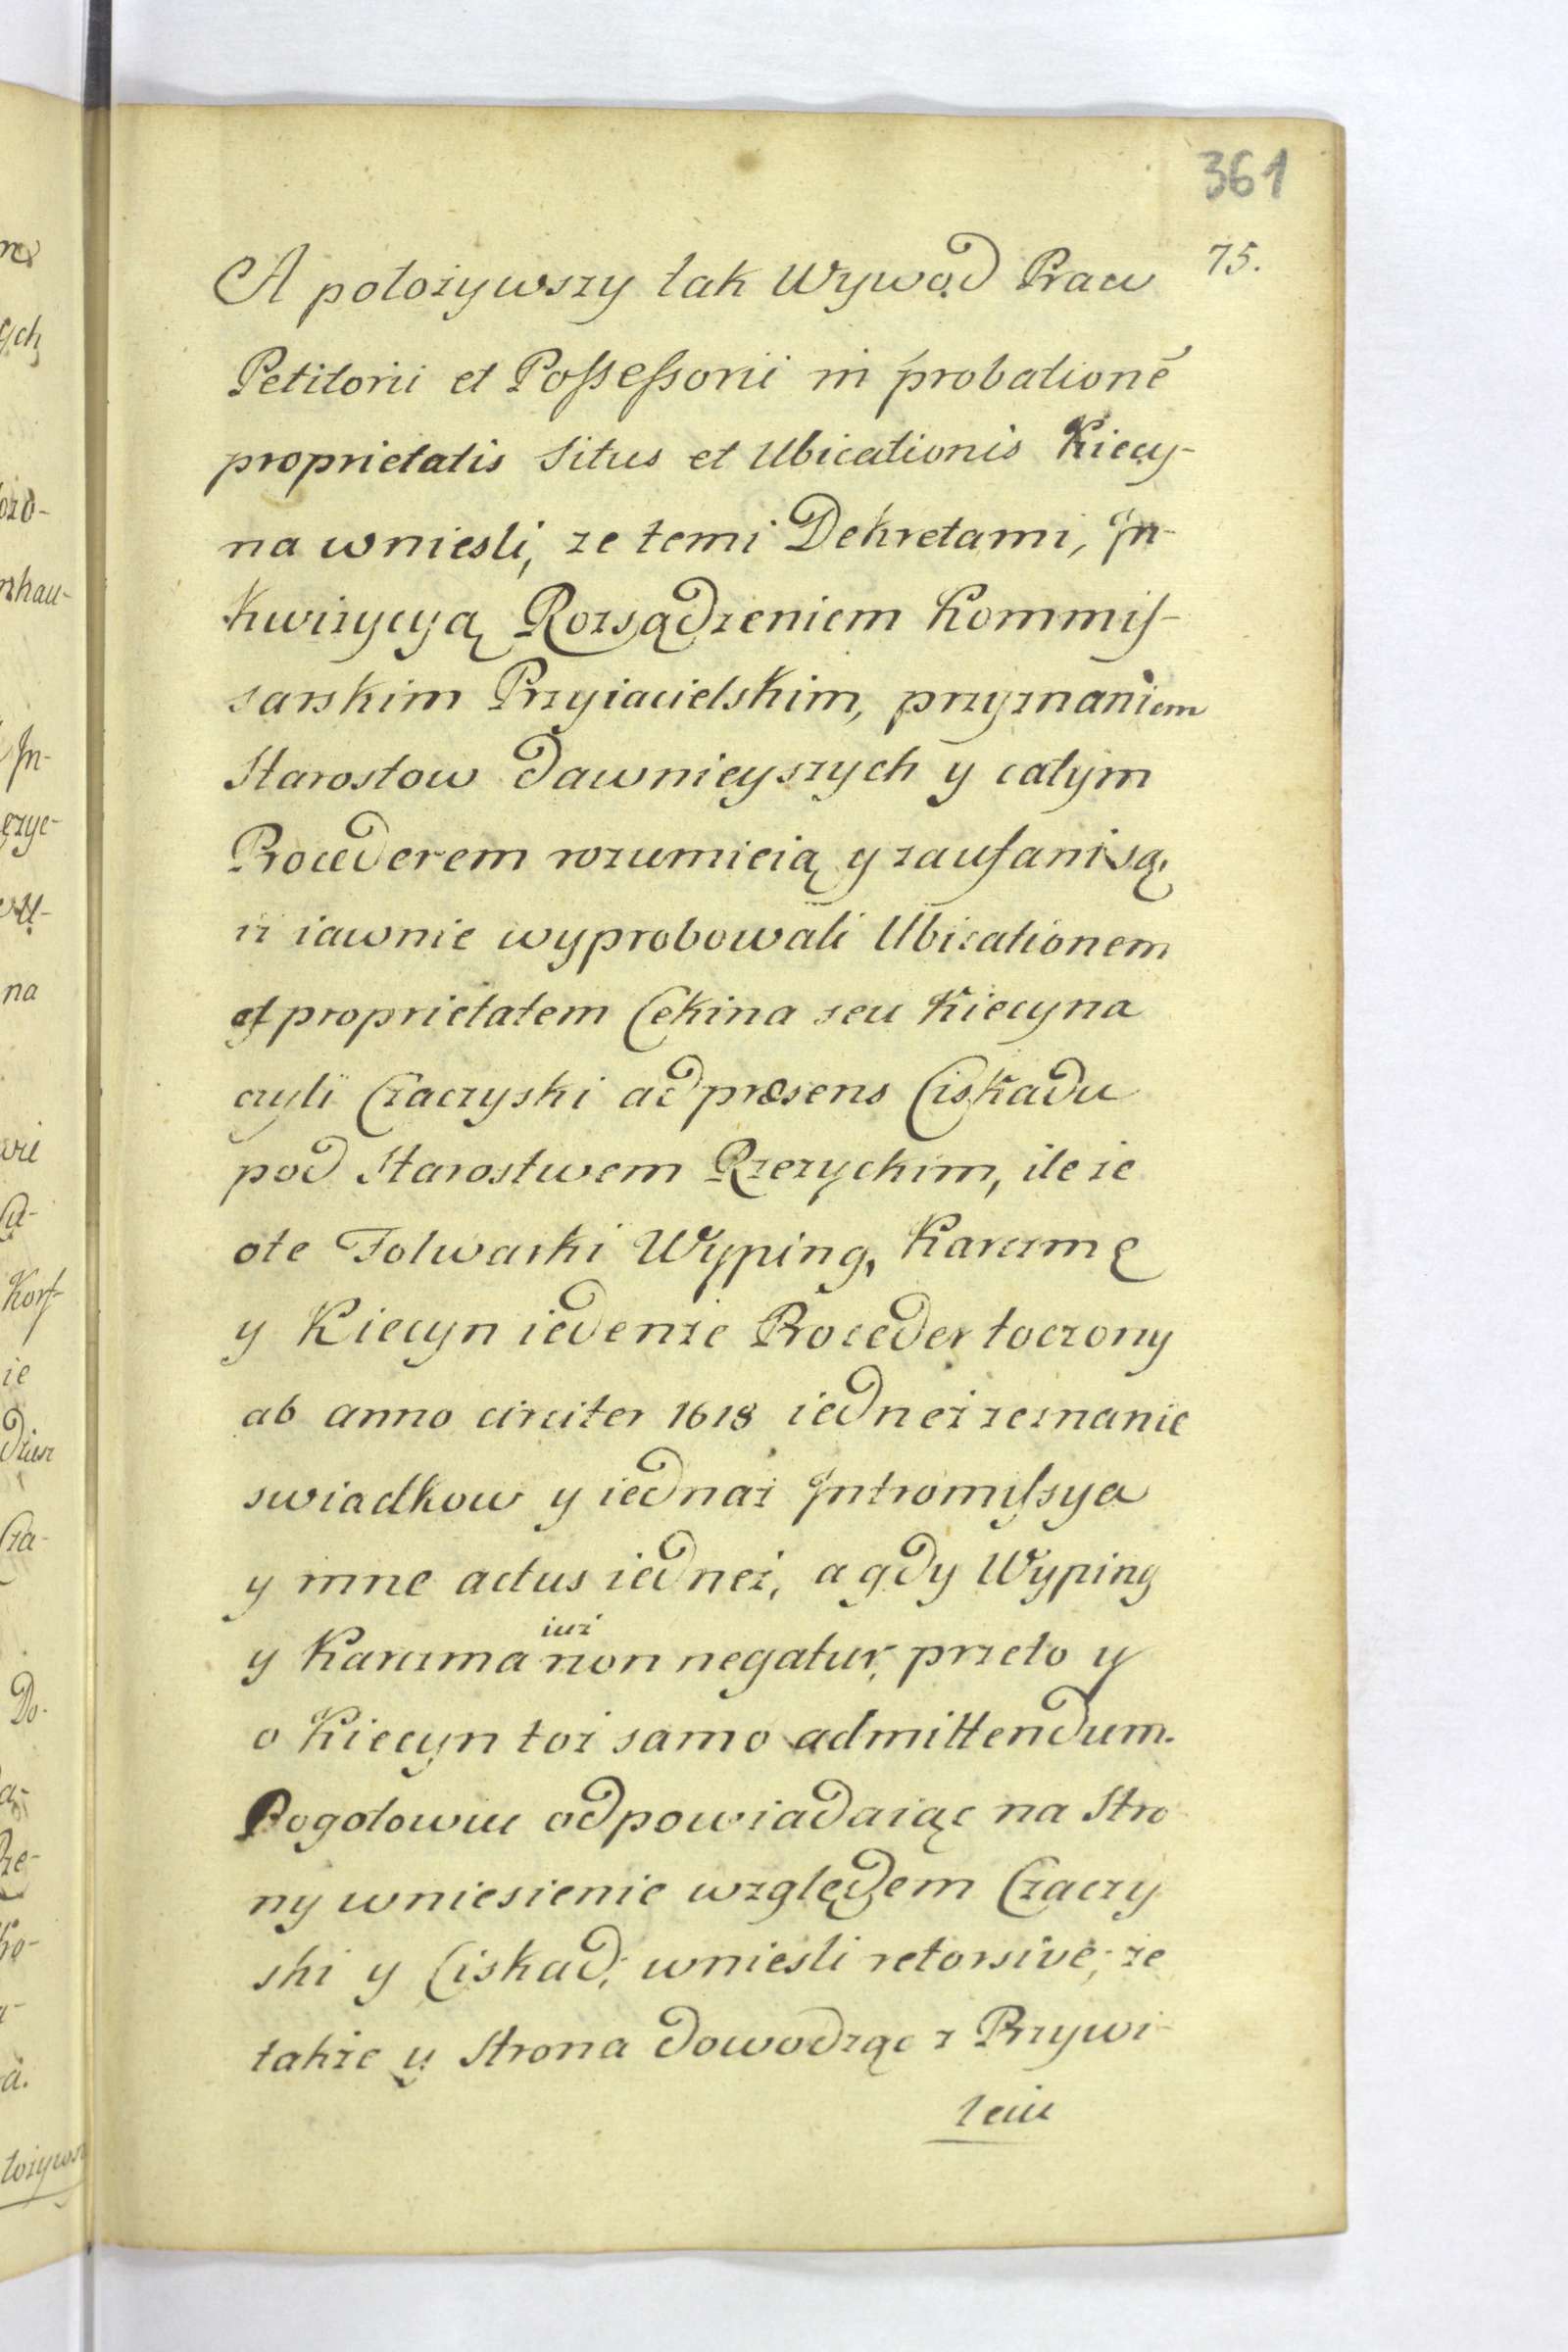 361
75.
A położywszy tak Wywod Praw
Petitorii et Possessorii in probationē
proprietatis Situs et Ubicationis Kiecy-
na wniesli, ze temi Dekretami, In-
kwizycyą Rozsądzeniem Kommis-
sarskim Przyiacielskim, przyznaniem
Starostow dawnieyszych y całym
Procederem rozumieią y zaufani są,
iż iawnie wyprobowali Ubicationem
et proprietatem Cekina seu Kiecyna
czyli Czaczyski ad præsens Ciskadu
pod Starostwem Rzezyckim, ile ze
o te Folwarki Wyping, Karczmę
y Kiecyn iedenze Proceder toczony
ab anno circiter 1618 iedneż zeznanie
swiadkow y iednaż Intromissya
y inne actus iedneż, a gdy Wyping
iuż
y Karczma non negatur, przeto y
o Kiecyn toż samo admittendum.
Pogotowiu odpowiadaiąc na Stro
ny wniesienie względem Czaczy
ski y Ciskad, wniesli retorsive, ze
takze y Strona dowodząc z Przywi-
leiu